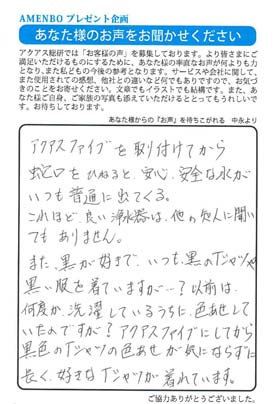 AMENBO プレゼント企画
あなた様のお声をお聞かせください
アクアス総研では「お客様の声」を募集しております。より皆さまにご
満足いただけるものにするために、あなた様の率直なお声が何よりも力
となり、また私どもの今後の参考となります。サービスや会社に関して、
また使用されての感想、他社との違いなど何でもありですので、お気づ
きのことをお寄せください。文章でもイラストでも結構です。また、あな
た様ご自身、ご家族の写真も添えていただけるととってもうれしいで
す。お待ちしております。
あなた様からの『お声』を待ちこがれる 中永より
アクアスファイブを取り付けてから
蛇口をひねると、安心、安全な水が
いつも普通に出てくる。
これほど、良い浄水器は、他の友人に聞い
てもありません。
また、黒が好きで、いつも、黒のTシャツや
黒い服を着ていますが…？以前は、
何度か、洗濯しているうちに、色あせして
いたのですが？アクアスファイブにしてから
黒色のTシャツの色あせが気にならずに
長く、好きなTシャツが着れています。
ご協力ありがとうございました。